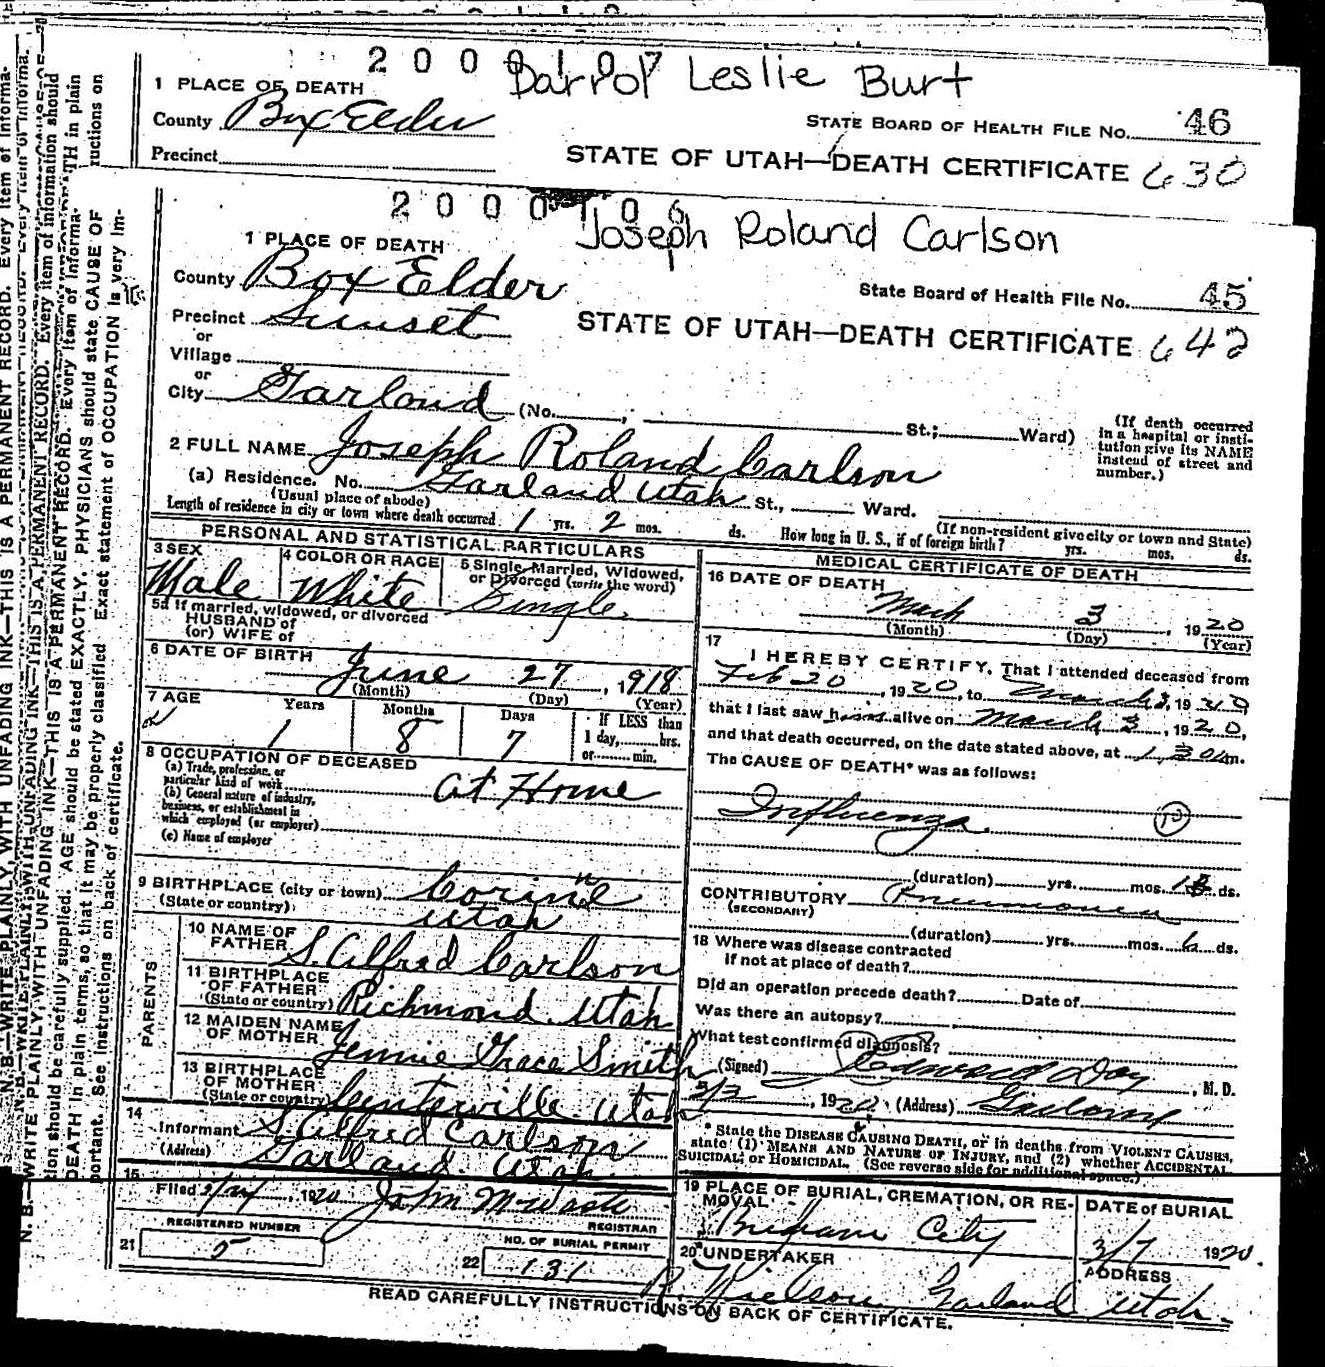 2000107
Darrol Leslie Burt
1 PLACE OF DEATH
County Box Elder
STATE BOARD OF HEALTH FILE NO. 46
Precinct
STATE OF UTAH—DEATH CERTIFICATE 630
2000106
Joseph Roland Carlson
1 PLACE OF DEATH
County Box Elder
State Board of Health File No. 45
Precinct Sunset
STATE OF UTAH—DEATH CERTIFICATE 642
or
Village
or
City Garland (No. ; St.; Ward)
(If death occurred in a hospital or institution give its NAME instead of street and number.)
2 FULL NAME Joseph Roland Carlson
(a) Residence. No. Garland Utah St., Ward.
(Usual place of abode)
(If non-resident give city or town and State)
Length of residence in city or town where death occurred 1 yrs. 2 mos. ds. How long in U. S., if of foreign birth? yrs. mos. ds.
PERSONAL AND STATISTICAL PARTICULARS
3 SEX Male
4 COLOR OR RACE White
5 Single, Married, Widowed, or Divorced (write the word) Single
5a If married, widowed, or divorced
HUSBAND of
(or) WIFE of
6 DATE OF BIRTH June 27, 1918
(Month) (Day) (Year)
7 AGE Years Months Days If LESS than
1 8 7 1 day, hrs.
or min.
8 OCCUPATION OF DECEASED
(a) Trade, profession, or particular kind of work At Home
(b) General nature of industry, business, or establishment in which employed (or employer)
(c) Name of employer
9 BIRTHPLACE (city or town) Corinne
(State or country) Utah
PARENTS
10 NAME OF FATHER S. Alfred Carlson
11 BIRTHPLACE OF FATHER (State or country) Richmond Utah
12 MAIDEN NAME OF MOTHER Jennie Grace Smith
13 BIRTHPLACE OF MOTHER (State or country) Centerville Utah
14
Informant S. Alfred Carlson
(Address) Garland Utah
15
Filed 1920 John M
REGISTRAR
21 REGISTERED NUMBER 5
22 NO. OF BURIAL PERMIT 131
MEDICAL CERTIFICATE OF DEATH
16 DATE OF DEATH
March 3, 1920
(Month) (Day) (Year)
17
I HEREBY CERTIFY, That I attended deceased from
Feb 20, 1920, to March 3, 19
that I last saw h alive on March 3, 1920,
and that death occurred, on the date stated above, at 1 30 m.
The CAUSE OF DEATH* was as follows:
Influenza 10
(duration) yrs. mos. ds.
CONTRIBUTORY Pneumonia
(SECONDARY)
(duration) yrs. mos. 6 ds.
18 Where was disease contracted
if not at place of death?
Did an operation precede death? Date of
Was there an autopsy?
What test confirmed diagnosis?
(Signed) , M. D.
3/3, 1920 (Address) Garland
* State the DISEASE CAUSING DEATH, or in deaths from VIOLENT CAUSES,
state (1) MEANS AND NATURE OF INJURY, and (2) whether ACCIDENTAL,
SUICIDAL, or HOMICIDAL. (See reverse side for additional space.)
19 PLACE OF BURIAL, CREMATION, OR REMOVAL
Brigham City
DATE of BURIAL
3/7 1920.
20 UNDERTAKER
ADDRESS
Garland Utah.
READ CAREFULLY INSTRUCTIONS ON BACK OF CERTIFICATE.
N. B.—WRITE PLAINLY, WITH UNFADING INK—THIS IS A PERMANENT RECORD. Every item of information should be carefully supplied. AGE should be stated EXACTLY. PHYSICIANS should state CAUSE OF DEATH in plain terms, so that it may be properly classified. Exact statement of OCCUPATION is very important. See instructions on back of certificate.